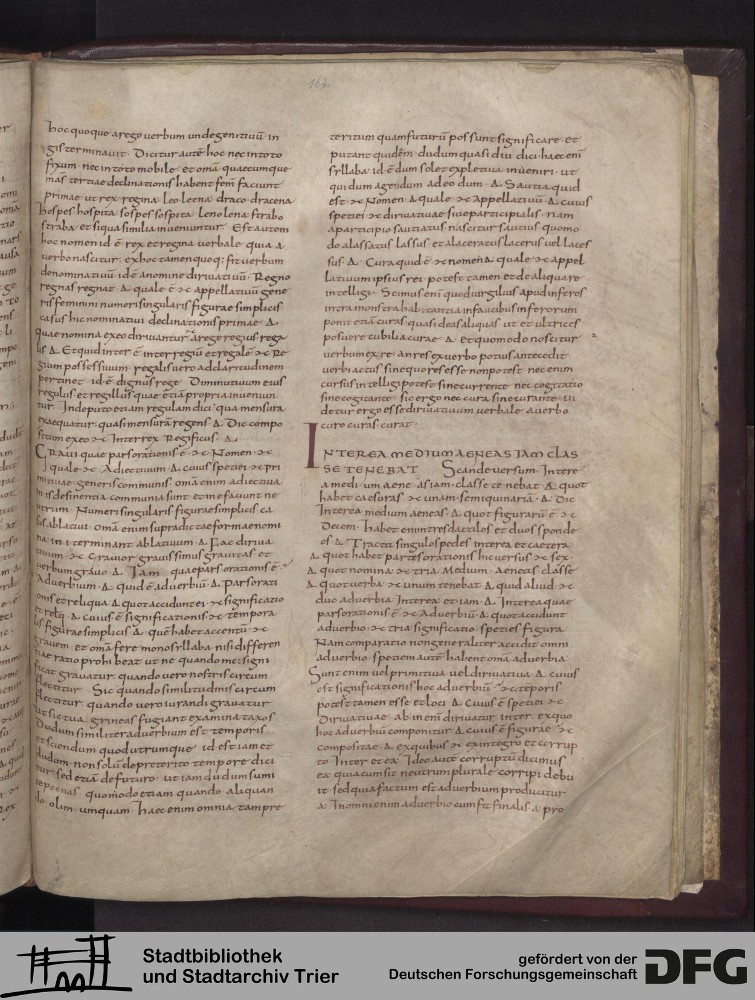 162
hoc quoque a rego verbum unde genitivū in
gis terminavit. Dicitur autē hoc nec in toto
fixum nec in toto mobile et omā quaecumque
mas tertiae declinationis habent fem̄ faciunt
primae ut rex regina leo leena draco dracena
hospes hospita sospes sospita leno lena strabo
straba et siqua similia inveniuntur Est autem
hoc nomen id ē rex et regina verbale quia a
verbo nascitur ex hoc tamen quoq; fit verbum
denominativū id ē a nomine dirivativū Regno
regnas regnat Δ quale ē ϗ appellativū gene
ris feminini numeri singularis figurae simplicis
casus hic nominativi declinationis primae Δ
quae nomina ex eo dirivantur a rege regius rega
lis Δ Et quid inter ē inter regiū et regalē ϗ Re
gium possessivum regalis vero ad claritudinem
pertinet id ē dignus rege Diminutivum eius
regulus et regillus quae etiā propria inveniun
tur Inde puto etiam regulam dici qua mensura
exaequatur quasi mensurā regens Δ Dic compo
situm ex eo ϗ Interrex Regificus Δ
GRAVI quae pars orationis ē ϗ Nomen ϗ
quale ϗ Adiectivum Δ cuius speciei ϗ pri
mitivae generis communis omā enim adiectiva
in is desinentia communia sunt et in e faciunt ne
utrum Numeri singularis figurae simplicis ca
sus ablativi Omā enim supradictae formae nomi
na in i terminant ablativum Δ Fac diriva
tivum ϗ Gravior gravissimus gravitas et
verbum gravo Δ Iam quae pars orationis ē
Adverbium Δ quid ē adverbiū Δ Pars orati
onis et reliqua Δ quot accidunt ei ϗ significatio
et relq̄ Δ cuius ē significationis ϗ tempora
lis figurae simplicis Δ quē habet accentū ϗ
gravem et omā fere monosyllaba nisi differen
tiae ratio prohibeat ut ne quando me: signi
ficat gravatur quando vero nostris circum
flectitur Sic quando similitudinis circum
flectitur quando vero iurandi gravatur
ut sic tua grineas fugiant examina taxos
Dudum similiter adverbium est temporis
et sciendum quod utrumque id est iam et
dudum non solū de preterito tempore dici
tur sed etiā de futuro ut iam dudum sumi
te poenas quomodo etiam quando aliquan
do olim umquam haec enim omnia tam pre
teritum quam futurū possunt significare et
putant quidēm dudum quasi diu dici haec enī
syllaba id ē dum solet expletiva inveniri ut
quidum agendum adeodum Δ Sautia quid
est ϗ Nomen Δ quale ϗ appellativū Δ cuius
speciei ϗ dirivativae sive participialis nam
a participio sautiatus nascitur sautius quomo
do a lassatus lassus et a laceratus lacerus vel laces
sus Δ Cura quid ē ϗ nomen Δ quale ϗ appel
lativum ipsius rei potest tamen et de aliqua re
intelligi Scimus enī quod virgilius apud inferos
intra monstra habitantia in faucibus inferorum
ponit etiā curas quasi deas aliquas ut et ultrices
posuere cubilia curae Δ et quomodo noscitur
verbum ex re an res ex verbo potius antecedit
verbi actus sine quo res esse non potest nec enim
cursus intelligi potest sine currente nec cogitatio
sine cogitante sic ergo nec cura sine curante vi
detur ergo esse dirivativum verbale a verbo
curo curas curat
INTEREA MEDIUM AENEAS IAM CLAS
SE TENEBAT Scande versum. Intere
a medi um aene as iam classe te nebat Δ quot
habet caesuras ϗ unam semiquinariā Δ Dic
Interea medium aeneas Δ quot figurarū ē ϗ
Decem habet enim tres dactilos et duos sponde
os Δ Tracta singulos pedes interea et caetera
Δ quot habet partes orationis hic versus ϗ sex
Δ quot nomina ϗ tria Medium aeneas classe
Δ quot verba ϗ unum tenebat Δ quid aliud ϗ
duo adverbia Interea et iam Δ Interea quae
pars orationis ē ϗ Adverbiū Δ quot accidunt
adverbio ϗ tria significatio species figura
Nam comparatio non generaliter accidit omni
adverbio speciem autē habent omā adverbia
Sunt enim vel primitiva vel dirivativa Δ cuius
est significationis hoc adverbiū ϗ teporis
potest tamen esse et loci Δ Cuius ē speciei ϗ
Dirivativae ab in enī dirivatur inter ex quo
hoc adverbium componitur Δ cuius ē figurae ϗ
compositae Δ ex quibus ϗ ex integro et corrup
to Inter et ea Ideo autē corruptū dicimus
ea quia cum sit neutrum plurale corripi debu
it sed quia factum est adverbium producitur
a in omni enim adverbio cum fit finalis a pro
Stadtbibliothek
und Stadtarchiv Trier
gefördert von der
Deutschen Forschungsgemeinschaft
DFG